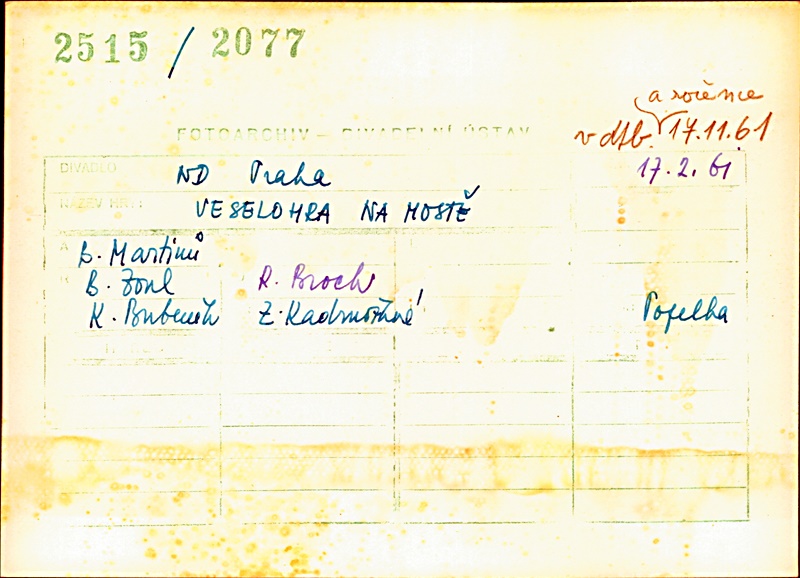 2515 / 2077
a ročence
FOTOARCHIV – DIVADELNÍ ÚSTAV
v dfb. 17.11.61
DIVADLO ND Praha 17.2.61
NÁZEV HRY: VESELOHRA NA MOSTĚ
B. Martinů
B. Zoul R. Brock
K. Bubeník Z. Kadrnožková Popelka